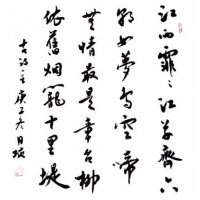 江雨霏々江草齊六
朝如夢鳥空啼
無情最是章台柳
依舊烟籠十里堤
古詩一首庚子冬月